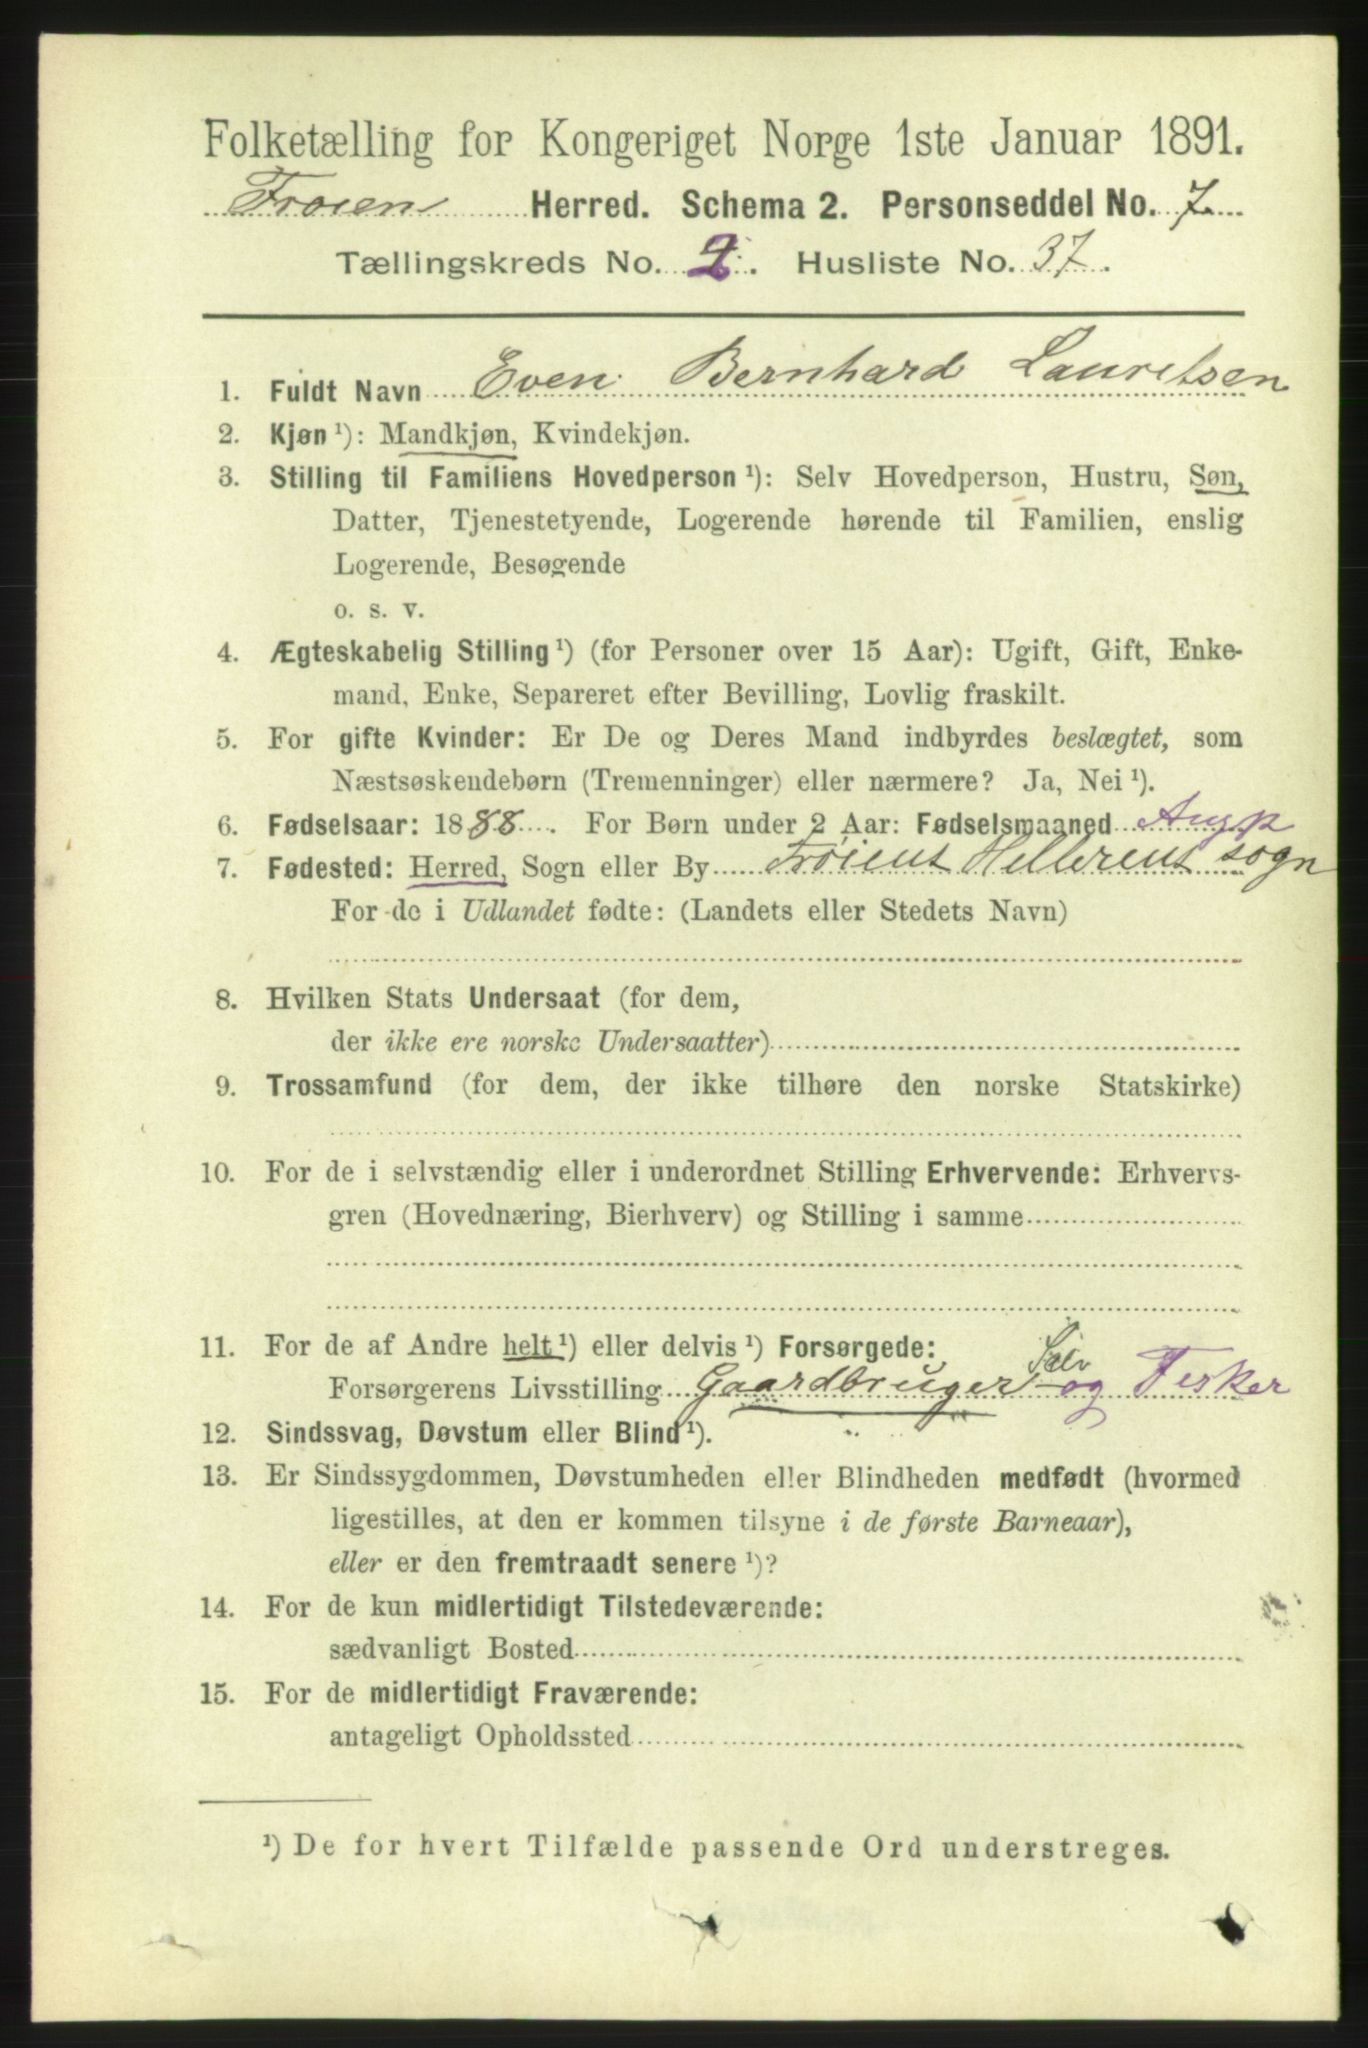 Folketælling for Kongeriget Norge 1ste Januar 1891.
Frøien Herred. Schema 2. Personseddel No. 7
Tællingskreds No. 2. Husliste No. 37.
1. Fuldt Navn Even Bernhard Lauritsen
2. Kjøn ¹): Mandkjøn, Kvindekjøn.
3. Stilling til Familiens Hovedperson ¹): Selv Hovedperson, Hustru, Søn,
Datter, Tjenestetyende, Logerende hørende til Familien, enslig
Logerende, Besøgende
o. s. v.
4. Ægteskabelig Stilling ¹) (for Personer over 15 Aar): Ugift, Gift, Enke-
mand, Enke, Separeret efter Bevilling, Lovlig fraskilt.
5. For gifte Kvinder: Er De og Deres Mand indbyrdes beslægtet, som
Næstsøskendebørn (Tremenninger) eller nærmere? Ja, Nei ¹).
6. Fødselsaar: 1888. For Børn under 2 Aar: Fødselsmaaned
7. Fødested: Herred, Sogn eller By Frøiens Hellerens sogn
For de i Udlandet fødte: (Landets eller Stedets Navn)
8. Hvilken Stats Undersaat (for dem,
der ikke ere norske Undersaatter)
9. Trossamfund (for dem, der ikke tilhøre den norske Statskirke)
10. For de i selvstændig eller i underordnet Stilling Erhvervende: Erhvervs-
gren (Hovednæring, Bierhverv) og Stilling i samme
11. For de af Andre helt ¹) eller delvis ¹) Forsørgede:
Forsørgerens Livsstilling Gaardbruger Selv og Fisker
12. Sindssvag, Døvstum eller Blind ¹).
13. Er Sindssygdommen, Døvstumheden eller Blindheden medfødt (hvormed
ligestilles, at den er kommen tilsyne i de første Barneaar),
eller er den fremtraadt senere ¹)?
14. For de kun midlertidigt Tilstedeværende:
sædvanligt Bosted
15. For de midlertidigt Fraværende:
antageligt Opholdssted
¹) De for hvert Tilfælde passende Ord understreges.